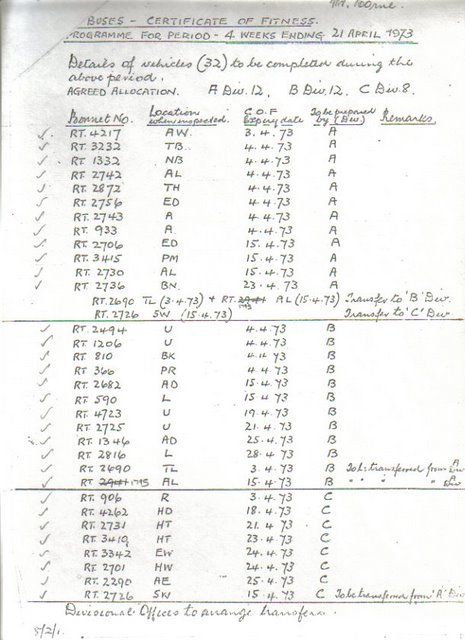 BUSES - CERTIFICATE OF FITNESS.
ROGRAMME FOR PERIOD - 4 WEEKS ENDING 21 APRIL 1973
Details of vehicles (32) to be completed during the
above period.
AGREED ALLOCATION. A Div. 12. B Div. 12. C Div. 8.
Bonnet No. Location when inspected. C.O.F Expiry date To be prepared by (Div) Remarks.
✓ RT. 4217 AW. 3. 4. 73 A
✓ RT. 3232 TB. 4. 4. 73 A
✓ RT. 1332 NB 4. 4. 73 A
✓ RT. 2742 AL 4. 4. 73 A
✓ RT. 2872 TH 4. 4. 73 A
✓ RT. 2756 ED 4. 4. 73 A
✓ RT. 2743 A 4. 4. 73 A
✓ RT. 933 A 4. 4. 73 A
✓ RT. 2706 ED 15. 4. 73 A
✓ RT. 3415 PM 15. 4. 73 A
✓ RT. 2730 AL 15. 4. 73 A
✓ RT. 2736 BN. 23. 4. 73 A
RT. 2690 TL (3.4.73) + RT. 1795 AL (15.4.73) Transfer to 'B' Div.
RT. 2726 SW (15.4.73) Transfer to 'C' Div
✓ RT. 2494 U 4. 4. 73 B
✓ RT. 1206 U 4. 4. 73 B
✓ RT. 810 BK 4. 4. 73 B
✓ RT. 366 PR 4. 4. 73 B
✓ RT. 2682 AD 15. 4. 73 B
✓ RT. 590 L 15. 4. 73 B
✓ RT. 4723 U 19. 4. 73 B
✓ RT. 2725 U 21. 4. 73 B
✓ RT. 1346 AD 25. 4. 73 B
✓ RT. 2816 L 28. 4. 73 B
✓ RT. 2690 TL 3. 4. 73 B To be transferred from A Div
✓ RT. 1795 AL 15. 4. 73 B " " " " A Div
✓ RT. 906 R 3. 4. 73 C
✓ RT. 4262 HD 18. 4. 73 C
✓ RT. 2731 HT 21. 4. 73 C
✓ RT. 3410 HT 23. 4. 73 C
✓ RT. 3342 EW 24. 4. 73 C
✓ RT. 2701 HW 24. 4. 73 C
✓ RT. 2290 AE 25. 4. 73 C
✓ RT. 2726 SW 15. 4. 73 C To be transferred from 'A' Div
Divisional Offices to arrange transfers.
5/2/1.